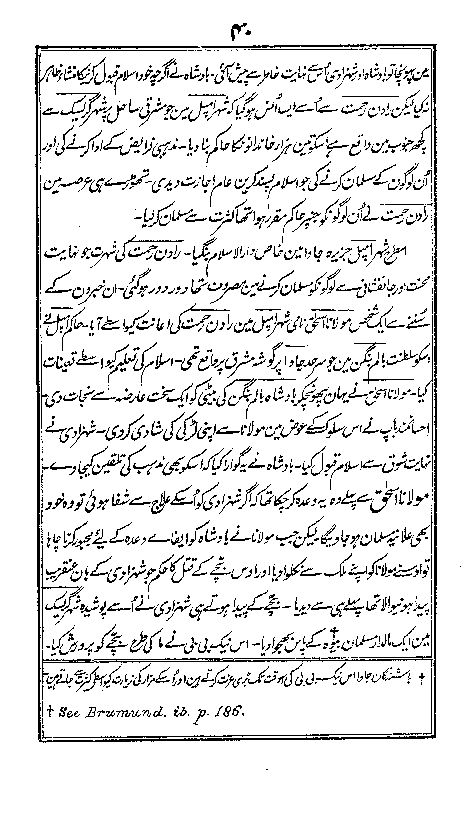 ۴۰
مین پہونچا تو بادشاہ اور شہزادی اُس سے نہایت خاطر سے پیش آئی۔ بادشاہ نے اگرچہ خود اسلام قبول کرنیکا منشاء ظاہر
نہ کیا لیکن رادن رحمت سے اُسے ایسا اُنس ہو گیا کہ شہر امپل مین جو مشرقی ساحل پر شہر گریسیک سے
کچھ جنوب مین واقع ہے اسکو تین ہزار خاندانونکا حاکم بنا دیا۔ مذہبی فرایض کے ادا کرنے کی اور
اُن لوگون کے مسلمان کرنے کی جو اسلام پسند کرین عام اجازت دیدی۔ تھوڑے ہی عرصہ مین
رادن رحمت نے اُن لوگونکو جنپر حاکم مقرر ہوا تھا کثرت سے مسلمان کر لیا۔
اسطرح شہر امپل جزیرہ جاوا مین خاص دارالاسلام بنگیا۔ رادن رحمت کی شہرت جو نہایت
محنت اور جانفشانی سے لوگونکو مسلمان کرنے مین مصروف تھا دور دور ہو گئی۔ ان خبرون کے
سُننے سے ایک شخص مولانا اسحٰق نامی شہر امپل مین رادن رحمت کی اعانت کیواسطے آیا۔ حاکم امپل نے
اسکو سلطنت بالمپنگن مین جو سرحد جاوا پر گوشہ مشرق پر واقع تھی۔ اسلام کی تعلیم کیواسطے تعینات
کیا۔ مولانا اسحٰق نے یہان پہونچکر بادشاہ بالمپنگن کی بیٹی کو ایک سخت عارضہ سے نجات دی۔
احسانمند باپ نے اس سلوک کے عوض مین مولانا سے اپنی لڑکی کی شادی کر دی۔ شہزادی نے
نہایت شوق سے اسلام قبول کیا۔ بادشاہ نے یہ گوارا کیا کہ اسکو بھی مذہب کی تلقین کیجاوے۔
مولانا اسحٰق سے پہلے وہ یہ وعدہ کر چکا تھا کہ اگر شہزادی کو اُسکے علاج سے شفا ہوئی تو وہ خود
بھی علانیہ مسلمان ہو جاویگا لیکن جب مولانا نے بادشاہ کو ایفاے وعدہ کے لیے مجبور کرنا چاہا
تو اوسنے مولانا کو اپنے ملک سے نکلوا دیا اور اوس بچے کے قتل کا حکم جو شہزادی کے ہان عنقریب
پیدا ہونیوالا تھا پہلے ہی سے دیدیا۔ بچے کے پیدا ہوتے ہی شہزادی نے اُسے پوشیدہ شہر گریسیک
مین ایک مالدار مسلمان بیوہ† کے پاس بھجوا دیا۔ اس نیک بی بی نے ماکی طرح بچے کو پرورش کیا۔
† باشندگان جاوا اس نیک بی بی کی اسوقت تک بڑی عزت کرتے ہین اور اُسکے مزار کی زیارت کیواسطے کثرت سے جاتے ہین
† See Brumund. ib. p. 186.